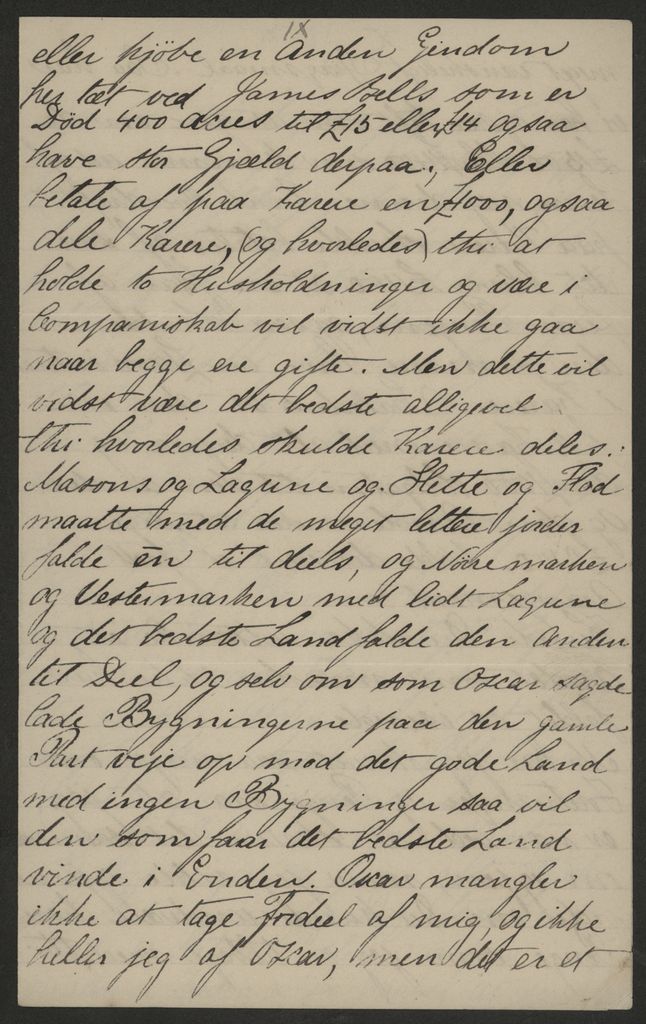 IX
eller kjöbe en Anden Eiendom
her tæt ved James Bells som er
Död 400 acres til £15 eller £14 ogsaa
have stor Gjæld derpaa; Eller
betale af paa Karere en £1000, ogsaa
dele Karere, (og hvorledes) thi at
holde to Husholdninger og være i
Companiskab vil vidst ikke gaa
naar begge ere gifte. Men dette vil
vidst være det bedste alligevel
thi hvorledes skulde Karere deles:
Masons og Lagune og Slette og Flad
maatte med de meget lettere jorder
falde én til deels, og Nörremarken
og Vestermarken med lidt Lagune
og det bedste Land falde den anden
til Deel, og selv om som Oscar sagde
lade Bygningerne paa den gamle
Part veje op mod det gode Land
med ingen Bygninger saa vil
den som faar det bedste Land
vinde i Enden. Oscar mangler
ikke at tage Fordeel af mig, og ikke
heller jeg af Oscar, men det er et